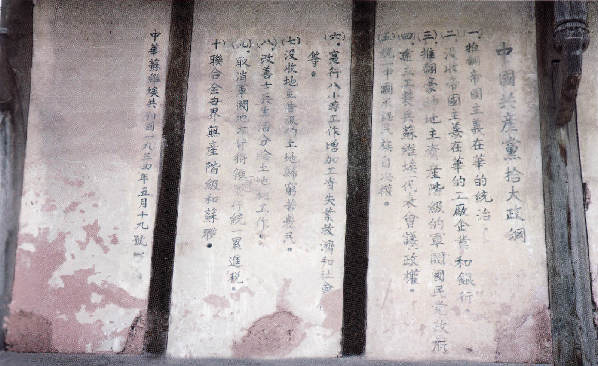 中國共產黨拾大政綱
一、推翻帝國主義在華的統治。
二、没收帝國主義在華的工廠企業和銀行。
三、推翻豪紳地主資產階級的軍閥國民党政府
四、建立工農兵蘇維埃代表會議政權。
(五)統一中國承認民族自决權。
(六)實行八小時工作增加工資失業救濟和社會
等。
(七)没收地主 土地歸 農民。
(八)改善士兵生活 土地 工作。
(九)取消軍閥地方 統一累進税。
(十)聯合全世界無產階級和蘇聯。
中華蘇維埃共和國一九三四年五月十九號